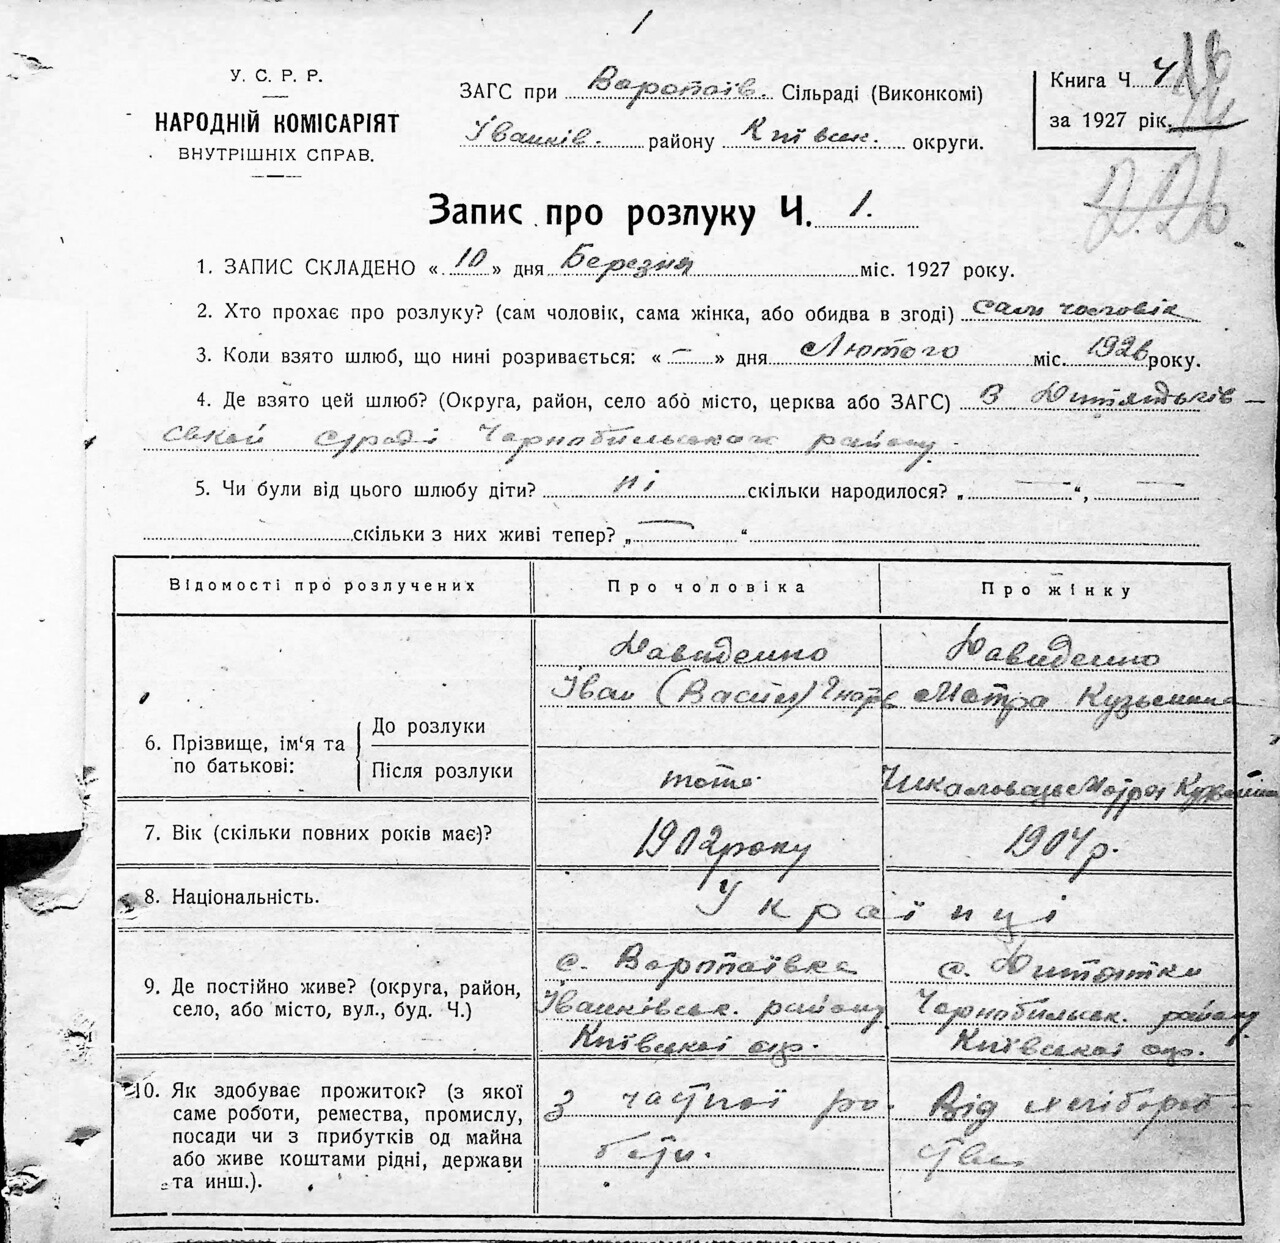 1
У. С. Р. Р.
НАРОДНІЙ КОМІСАРІЯТ
ВНУТРІШНІХ СПРАВ.
ЗАГС при Воропаїв. Сільраді (Виконкомі)
Іванків. району Київськ. округи.
Книга Ч. 4
за 1927 рік.
Запис про розлуку Ч. 1.
1. ЗАПИС СКЛАДЕНО « 10 » дня Березня міс. 1927 року.
2. Хто прохає про розлуку? (сам чоловік, сама жінка, або обидва в згоді) сам чоловік
3. Коли взято шлюб, що нині розривається: « — » дня Лютого міс. 1926 року.
4. Де взято цей шлюб? (Округа, район, село або місто, церква або ЗАГС) В Дитятьків-
ській с/раді Чорнобильськ. району.
5. Чи були від цього шлюбу діти? ні скільки народилося? „ — “, —
скільки з них живі тепер? „ — “
Відомості про розлучених
Про чоловіка
Про жінку
6. Прізвище, ім‘я та по батькові:
До розлуки
Давиденко
Іван (Васил) Ігнатів
Давиденко
Мотра Кузьминна
Після розлуки
тоте
Мотра
7. Вік (скільки повних років має)?
1902 року
1904 р.
8. Національність.
Українці
9. Де постійно живе? (округа, район,
село, або місто, вул., буд. Ч.)
с. Воропаївка
Іванківськ. району
Київської окр.
с. Дитятки
Чорнобильськ. району
Київської окр.
10. Як здобуває прожиток? (з якої
саме роботи, ремества, промислу,
посади чи з прибутків од майна
або живе коштами рідні, держави
та инш.).
з частної ро-
боти.
Від хлібороб-
ства